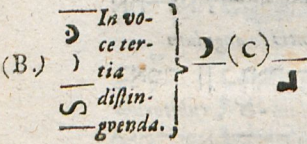 In vo-
ce ter-
(B.) tia (C)
distin-
gvenda.